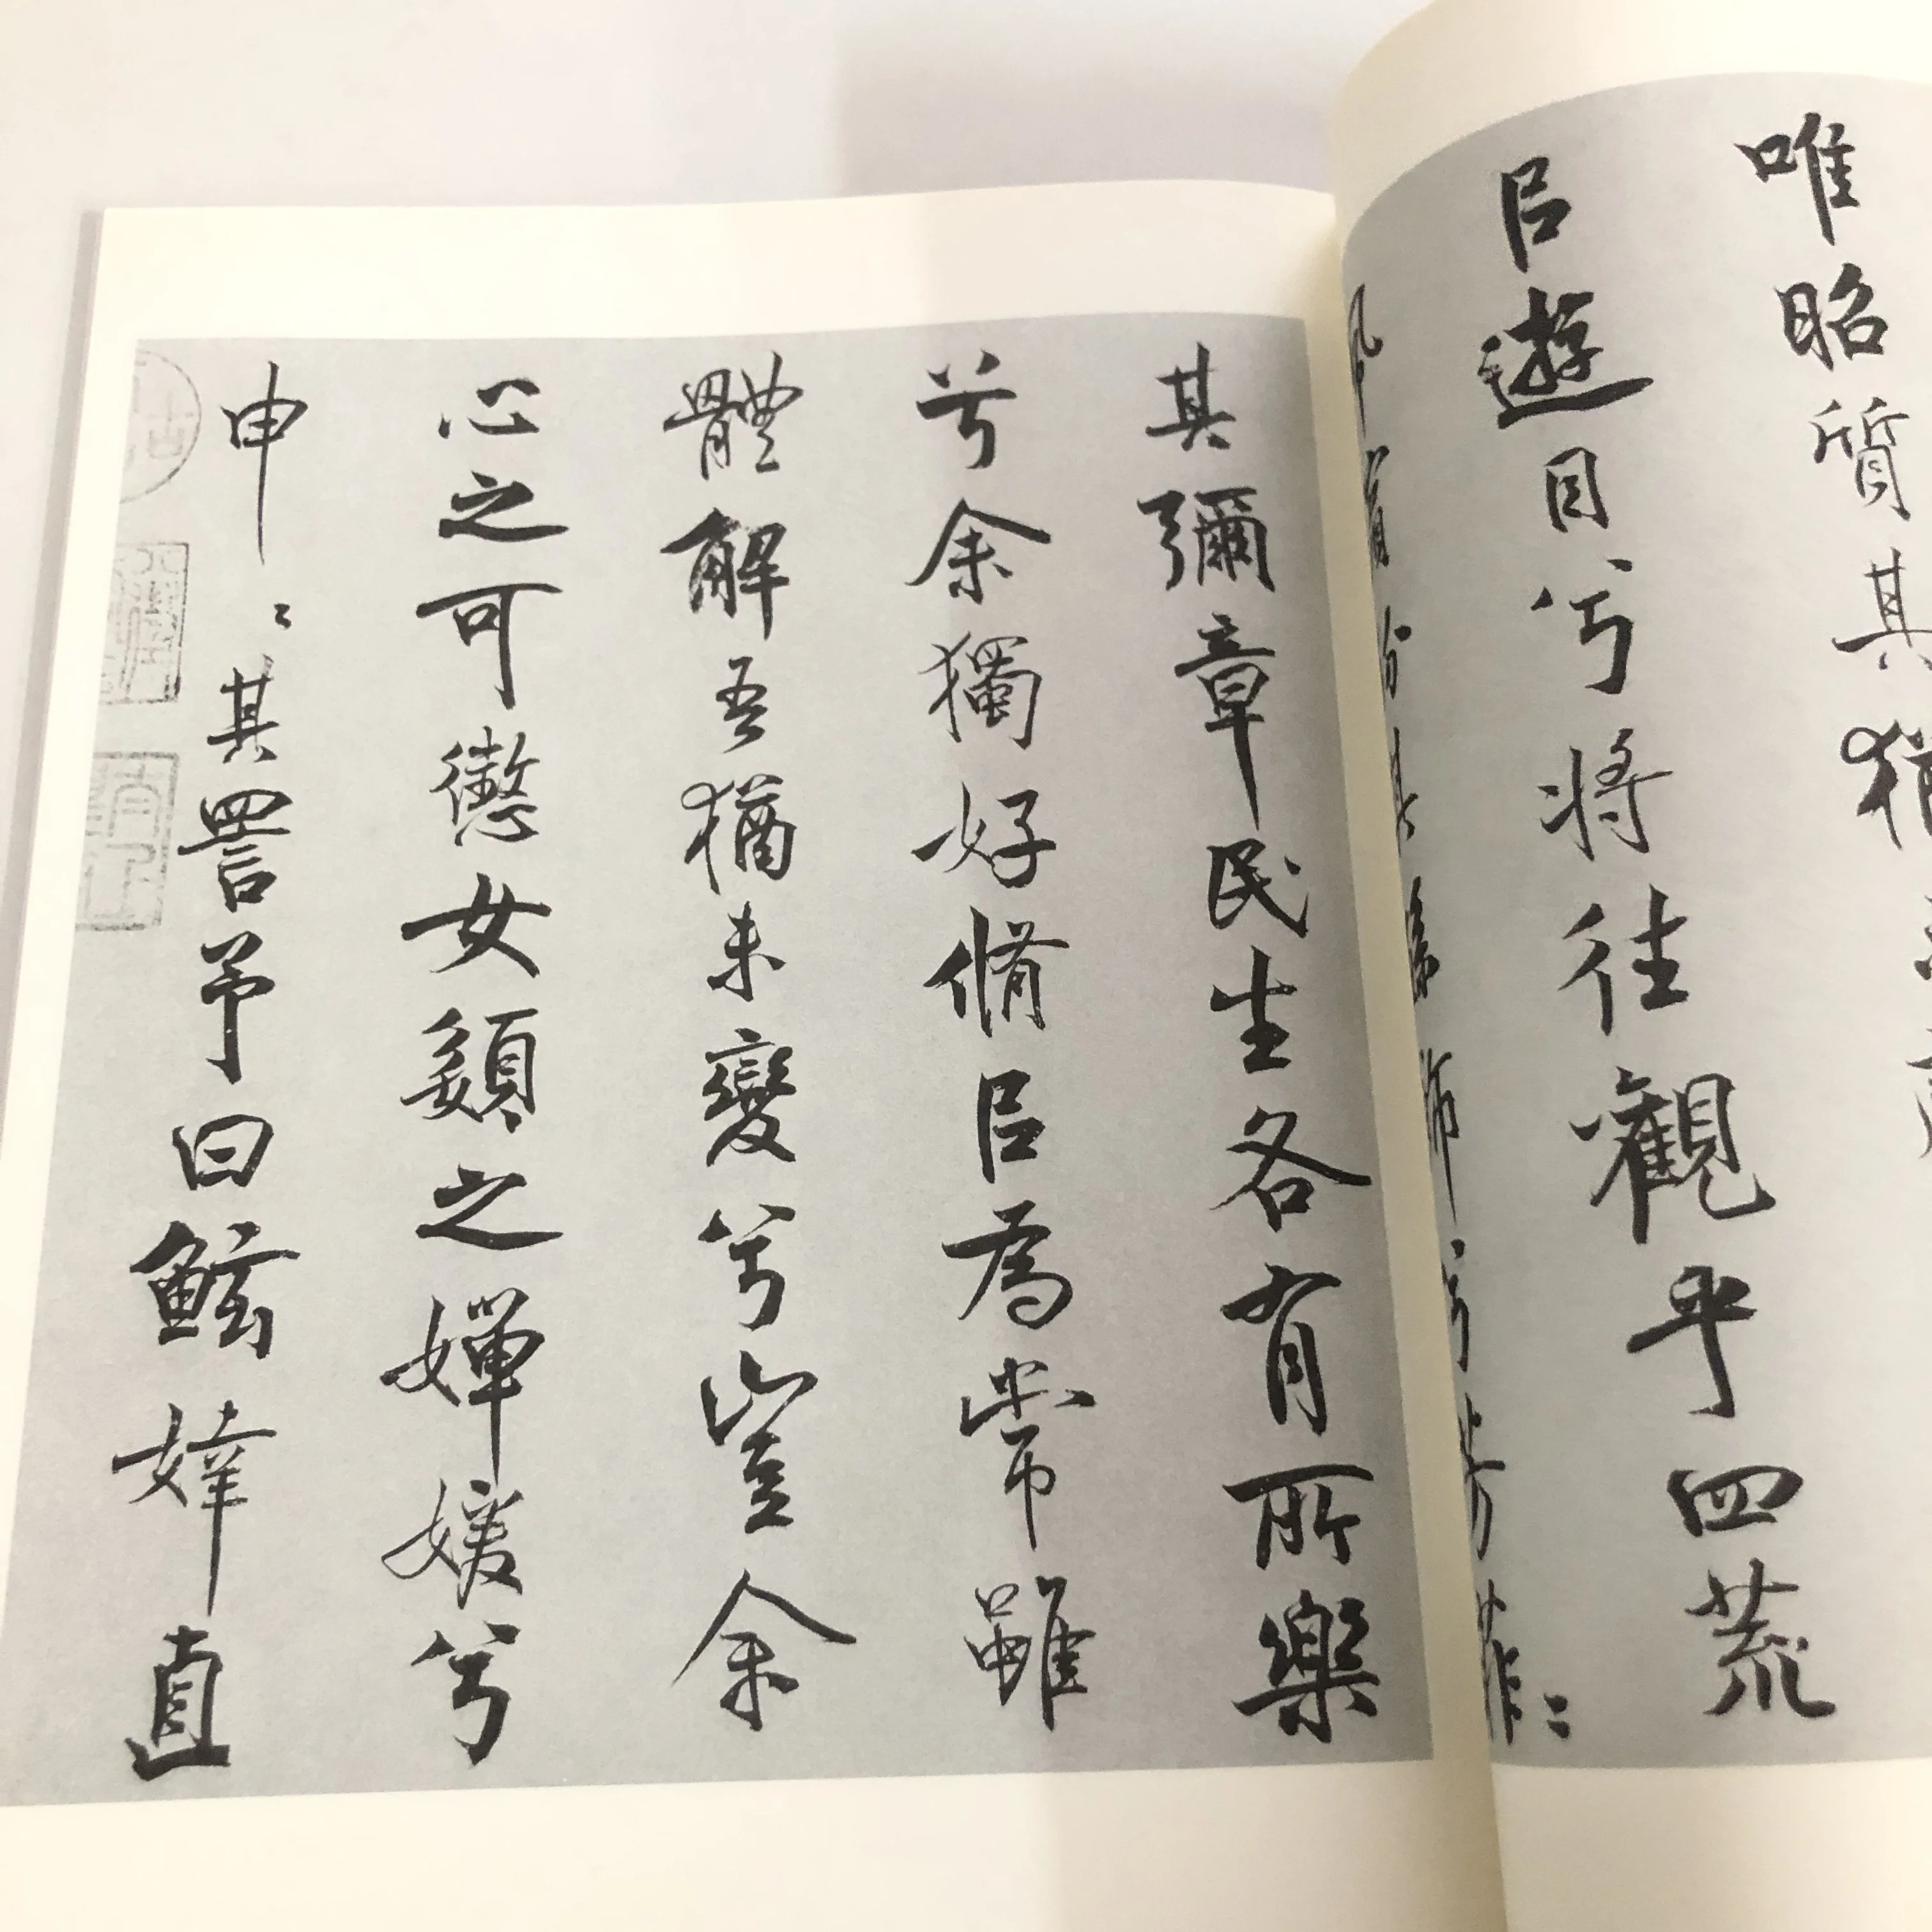 唯昭質其猶
㠯遊目兮將往觀乎四荒
飾兮芳菲〻
其彌章民生各有所樂
兮余獨好脩㠯為常雖
體解吾猶未變兮豈余
心之可懲女嬃之嬋媛兮
申〻其詈予曰鮌婞直